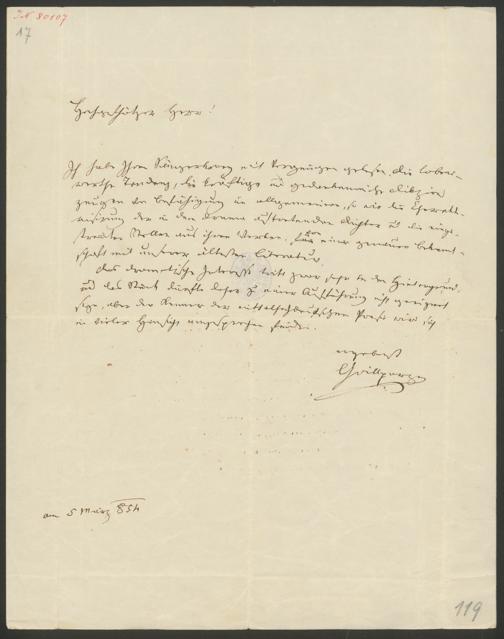 IN 80107
17
Hochgeschätzter Herr!
Ich habe Ihren Sängerkrieg mit Vergnügen gelesen. Die lobens-
werthe Tendenz, die kräftige und gedankenreiche
zeugen von Befähigung im allgemeinen, so wie die Charakte-
risirung der in dem Drama auftretenden Dichter und die einge-
streuten Stellen aus ihren Werken von einer genauen Bekannt-
schaft mit unserer ältesten Literatur.
Das dramatische Interesse tritt zwar sehr in den Hintergrund
und das Stück dürfte daher zu einer Aufführung nicht geeignet
seyn, aber der Kenner der mittelhochdeutschen Poesie wird sich
in vieler Hinsicht angesprochen finden.
ergebenst
Grillparzer
am 5 März 854
119